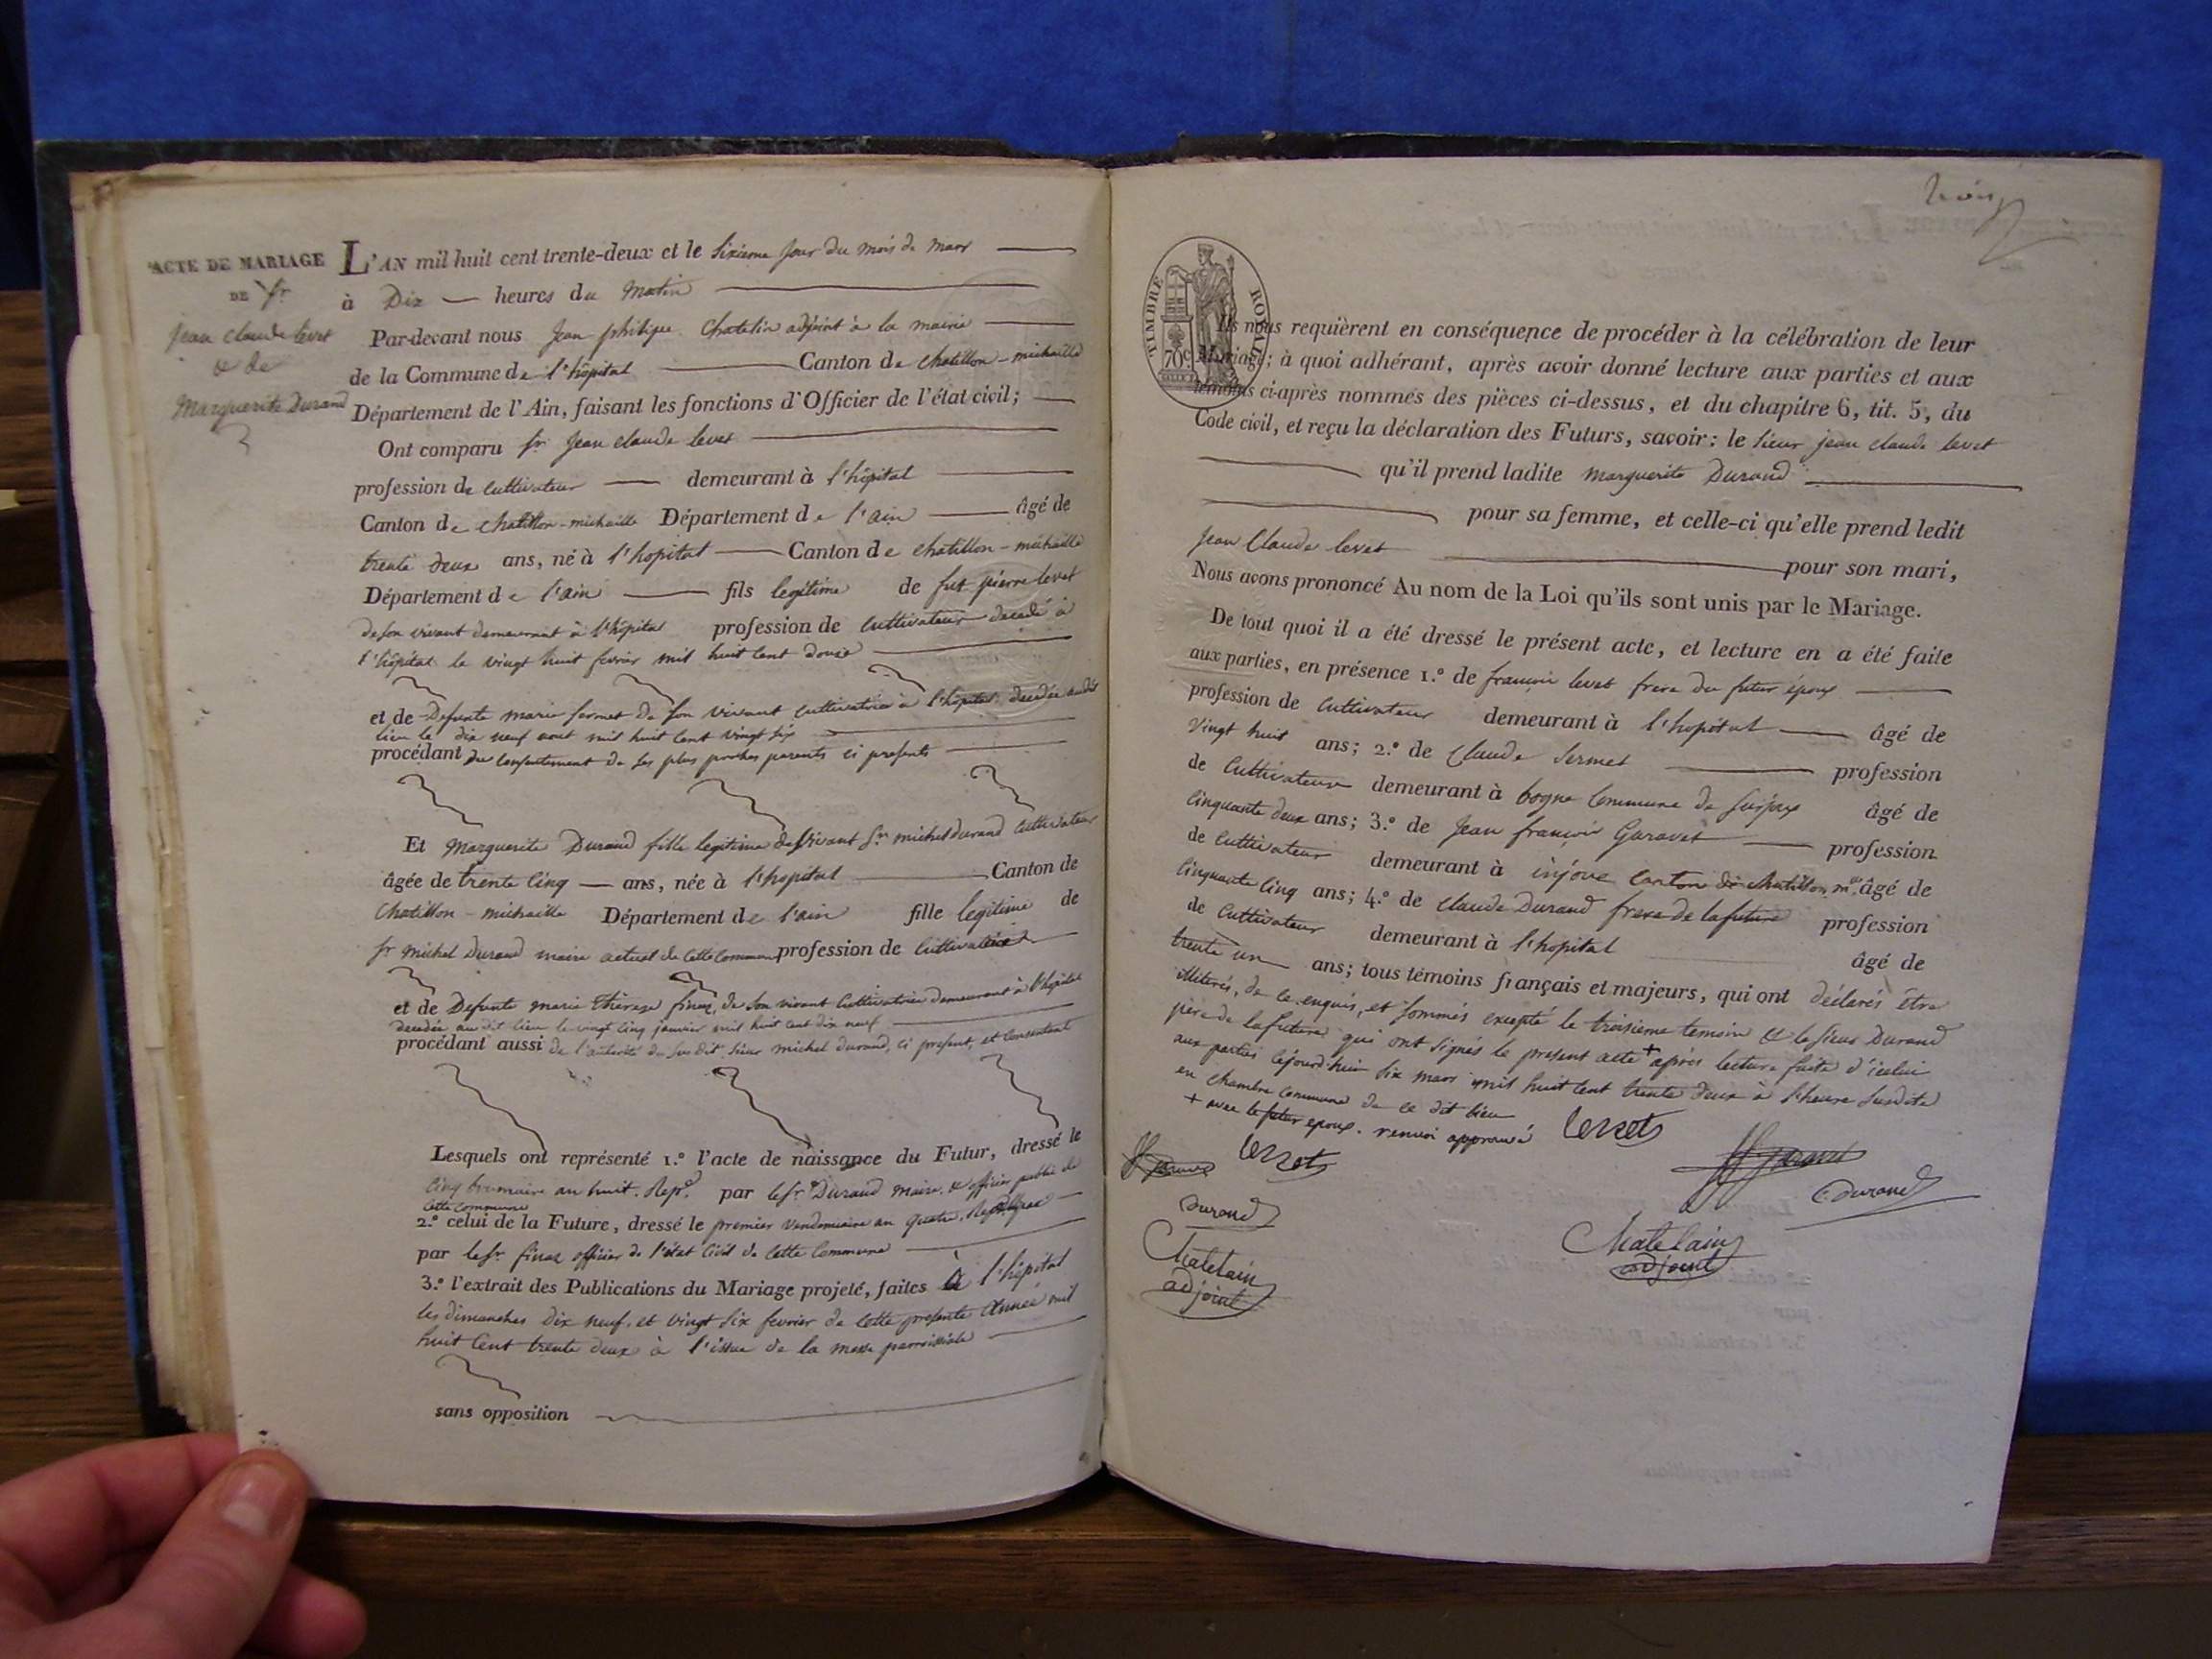 ACTE DE MARIAGE
DE Sr.
jean claude levet
& de
Marguerite Durand
L'AN mil huit cent trente-deux et le sixieme jour du mois de mars
à Dix heures du Matin
Par-devant nous Jean philipe Chatelin adjoint à la mairie
de la Commune de l'hôpital Canton de chatillon-michaille
Département de l'Ain, faisant les fonctions d'Officier de l'état civil;
Ont comparu sr. Jean claude levet
profession de Cultivateur demeurant à l'hôpital
Canton de chatillon-michaille Département de l'ain âgé de
trente deux ans, né à l'hopital Canton de chatillon-michaille
Département de l'ain fils legitime de fut pierre levet
de son vivant demeurant à l'hôpital profession de Cultivateur decedé à
l'hôpital le vingt huit fevrier mil huit cent douze
et de Defunte marie sermet de son vivant cultivatrice à l'hôpital decedée audit
lieu le dix neuf aout mil huit cent vingt six
procédant du consentement de ses plus proches parents ci presents
Et Marguerite Durand fille legitime de vivant Sr. michel durand Cultivateur
âgée de trente cinq ans, née à l'hopital Canton de
Chatillon-michaille Département de l'ain fille legitime de
sr michel Durand maire actuel de cette commune profession de Cultivateur
et de Defunte marie thérese finaz de son vivant Cultivatrice demeurant à l'hôpital
decedée au dit lieu le vingt cinq janvier mil huit cent dix neuf
procédant aussi de l'autorité du susdit sieur michel durand, ci present, et consentant
Lesquels ont représenté 1.º l'acte de naissance du Futur, dressé le
cinq brumaire an huit. Rep.e par le sr. Durand maire & officier public de
cette commune
2.º celui de la Future, dressé le premier vendemiaire an quatre,
par le sr. finaz officier de l'état Civil de cette Commune
3.º l'extrait des Publications du Mariage projeté, faites à l'hôpital
les dimanches dix neuf, et vingt six fevrier de cette presente année mil
huit cent trente deux à l'issue de la messe parroissiale
sans opposition
trois
TIMBRE ROYAL
70 c.
Ils nous requièrent en conséquence de procéder à la célébration de leur
Mariage; à quoi adhérant, après avoir donné lecture aux parties et aux
témoins ci-après nommés des pièces ci-dessus, et du chapitre 6, tit. 5, du
Code civil, et reçu la déclaration des Futurs, savoir: le sieur jean claude levet
qu'il prend ladite marguerite Durand
pour sa femme, et celle-ci qu'elle prend ledit
Jean Claude levet pour son mari,
Nous avons prononcé Au nom de la Loi qu'ils sont unis par le Mariage.
De tout quoi il a été dressé le présent acte, et lecture en a été faite
aux parties, en présence 1.º de françois levet frere du futur époux
profession de Cultivateur demeurant à l'hopital âgé de
Vingt huit ans; 2.º de Claude Sermet profession
de Cultivateur demeurant à bogne Commune de surjoux âgé de
Cinquante deux ans; 3.º de Jean françois Garavet profession
de Cultivateur demeurant à injoux Canton de Chatillon m. âgé de
Cinquante cinq ans; 4.º de claude Durand frere de la future profession
de Cultivateur demeurant à l'hopital âgé de
trente un ans; tous témoins français et majeurs, qui ont déclarés être
illiterés, de ce enquis, et sommés excepté le troisieme temoin & le sieur Durand
pere de la future qui ont signés le present acte + après lecture faite d'icelui
aux parties cejourd'hui six mars mil huit cent trente deux à l'heure susdite
en chambre commune de ce dit lieu
+ avec le futur epoux. renvoi approuvé
levret
levret
C. Durand
Durand
Chatelain
adjoint
Chatelain
adjoint